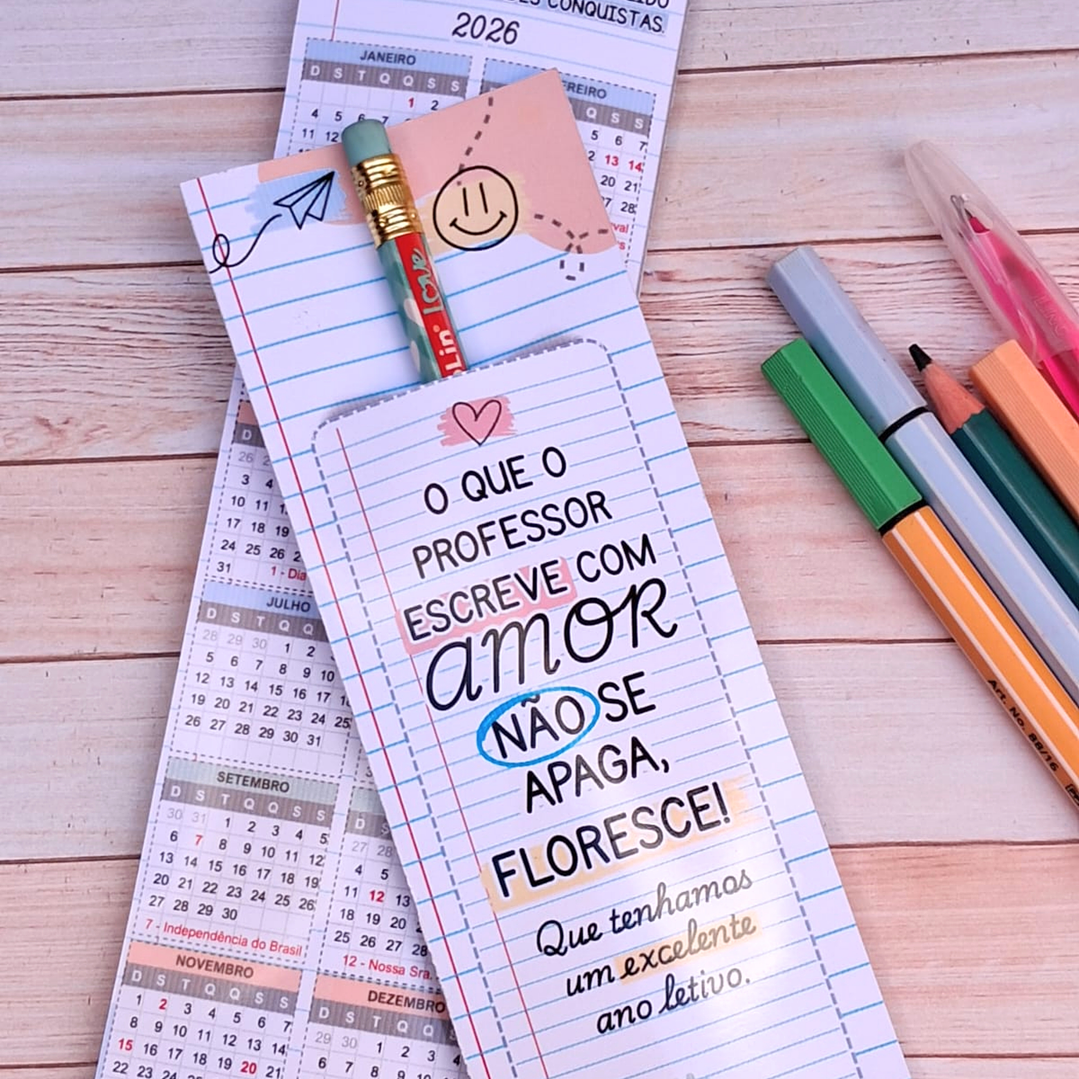 CONQUISTAS.
2026
JANEIRO
D S T Q Q S S
1 2
4 5 6 7
11 12
Q S S
5 6 7
13 14
20 21
27 28
Love
O QUE O
PROFESSOR
ESCREVE COM
AMOR
NÃO SE
APAGA,
FLORESCE!
Que tenhamos
um excelente
ano letivo.
D
26
3 4
10 11
17 18 19
24 25 26
31
JULHO
D S T Q Q
28 29 30 1 2
5 6 7 8 9 10
12 13 14 15 16 17
19 20 21 22 23 24 25
26 27 28 29 30 31
SETEMBRO
D S T Q Q S S
30 31 1 2 3 4 5
6 7 8 9 10 11 12
13 14 15 16 17 18 19
20 21 22 23 24 25 26
27 28 29 30
7 - Independência do Brasil
D S
27 28
11 12 13
18 19 20
25 26 27 28
12 - Nossa Sra.
NOVEMBRO
D S T Q Q S S
1 2 3 4 5 6 7
8 9 10 11 12 13 14
15 16 17 18 19 20 21
22 23 24 25 26 27 28
DEZEMBRO
D S T Q Q
29 30 1 2 3 4
6 7 8 9 10
Art. No. 88/16